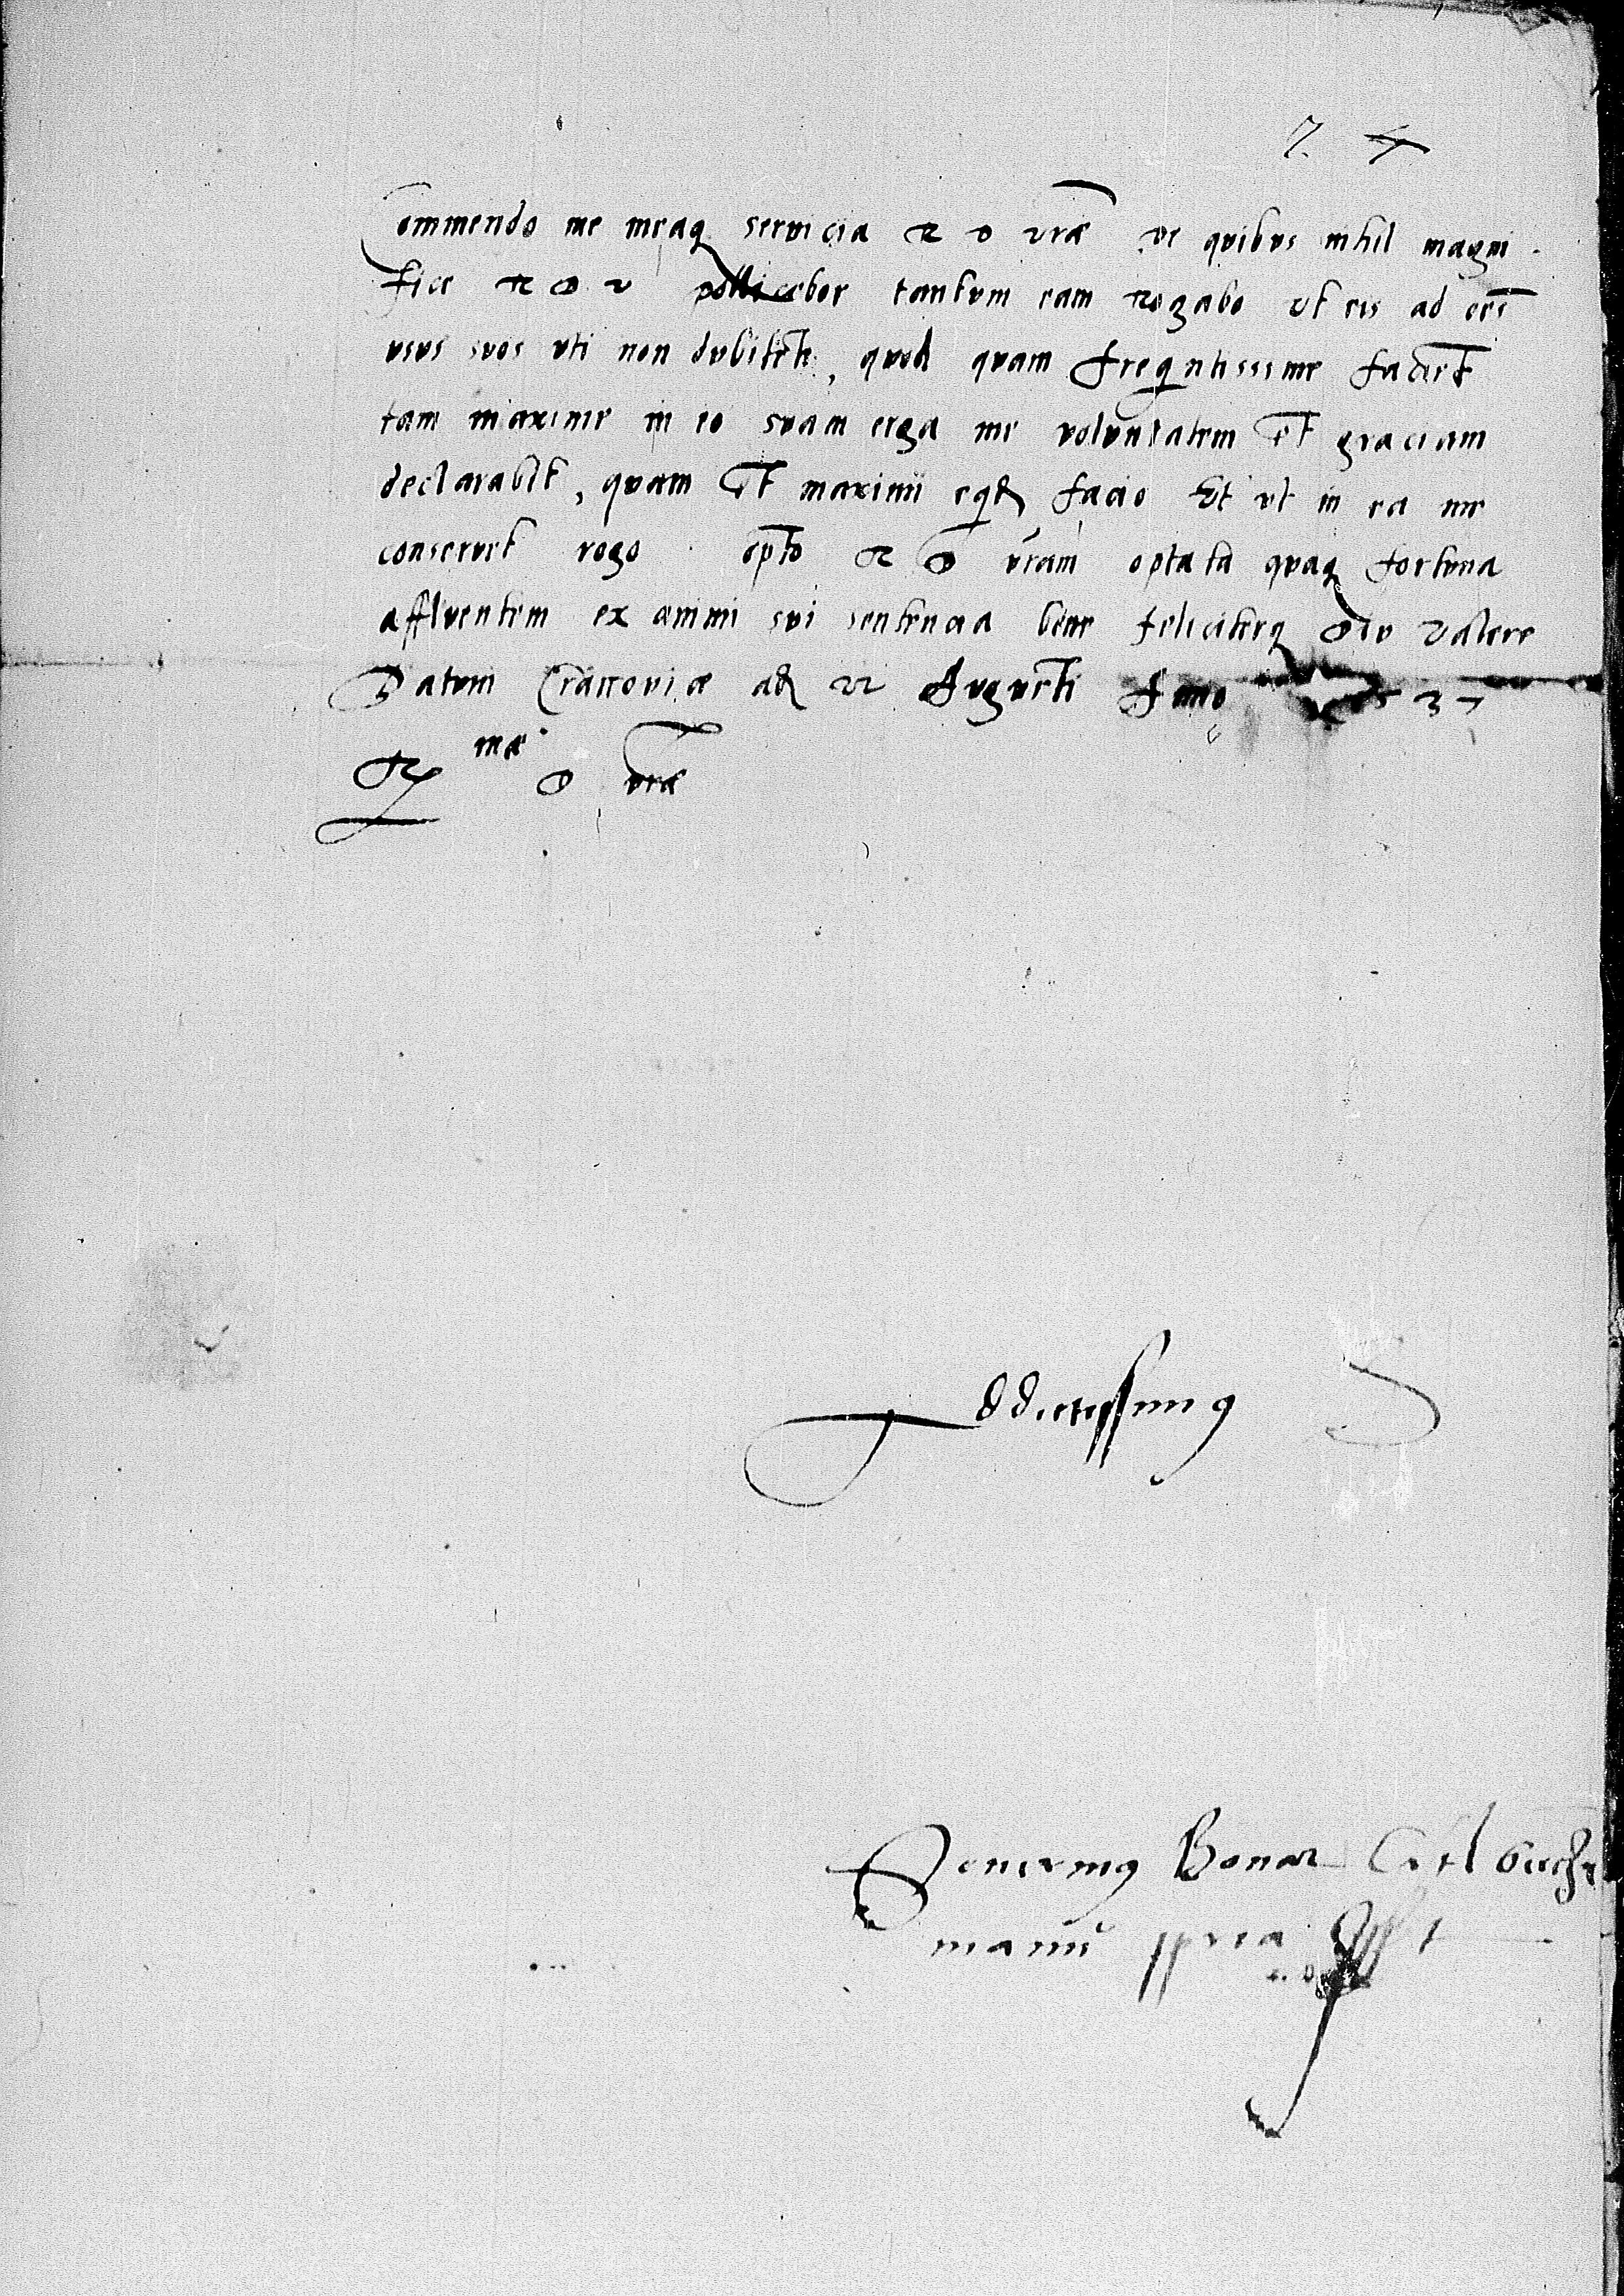 7. 4
Commendo me meaq servicia R D vrae de quibus nihil magni
fice R D V pollicebor tantum eam rogabo ut eis ad oes
usus suos uti non dubitet, quod quam freqntissime faciet
tam maxime in eo suam erga me voluntatem et graciam
declarabit, quam et maximi eqd facio Et ut in ea me
conservet rogo. opto R D vram optata quaq fortuna
affluentem ex animi sui sentencia bene feliciterq diu valere
Datum Cracoviae ad 22 Augusti Anno 37
R mae D vrae
Addictissimus
Severinus Bonar
manu ppria sspt